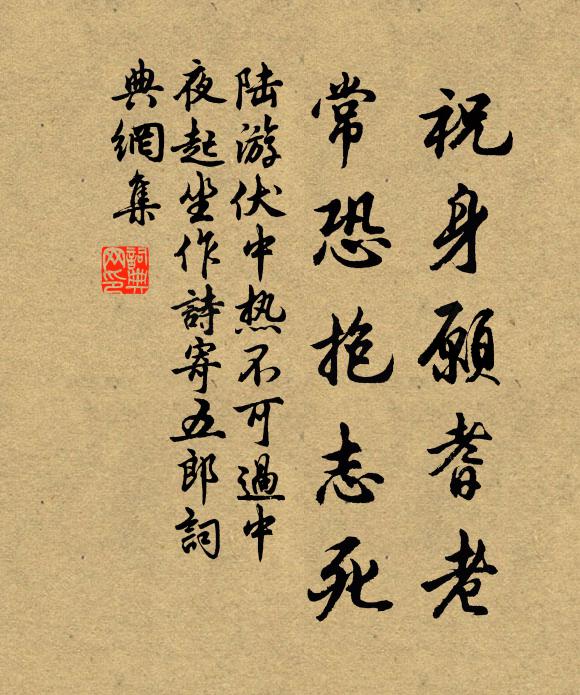 祝身願耆老
常恐抱志死
陆游伏中热不可過中
夜起坐作詩寄五郎詞
典網集
詞典網印